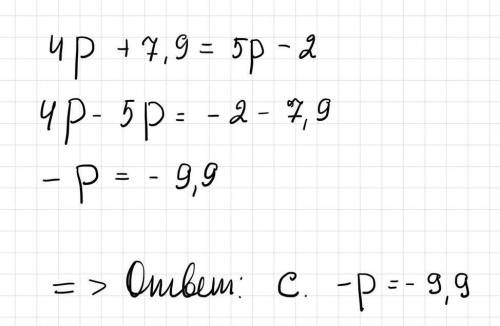 4p + 7,9 = 5p - 2
4p - 5p = - 2 - 7,9
- p = - 9,9
=> Ответ: С. -p = - 9,9